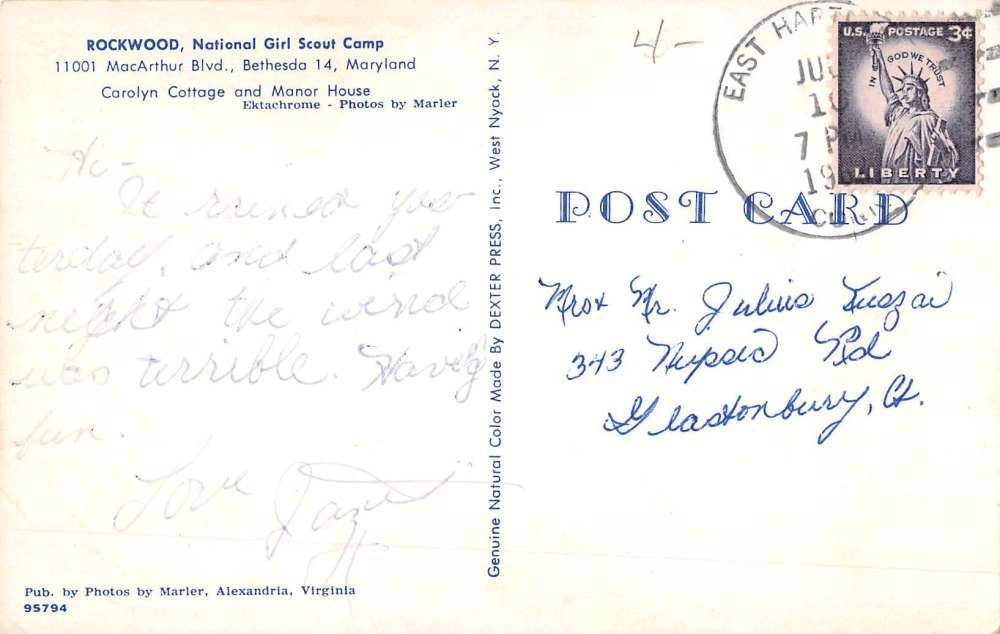 ROCKWOOD, National Girl Scout Camp
11001 MacArthur Blvd., Bethesda 14, Maryland
Carolyn Cottage and Manor House
Ektachrome - Photos by Marler
Hi-
It rained yes-
terday, and last
night the wind
was terrible. Having
fun.
Love
Pub. by Photos by Marler, Alexandria, Virginia
95794
Genuine Natural Color Made By DEXTER PRESS, Inc., West Nyack, N. Y.
4-
EAST HART
7 PM
19
CONN
U.S. POSTAGE 3¢
IN GOD WE TRUST
LIBERTY
POST CARD
Mr. Julius
343 Rd
Glastonbury, Ct.